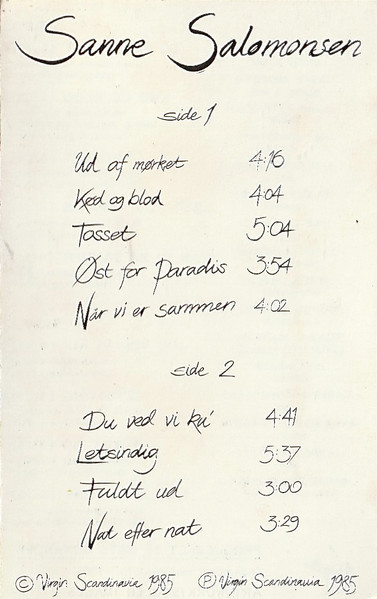 Sanne Salomonsen
side 1
Ud af mørket 4:16
Kød og blod 4:04
Tosset 5:04
Øst for Paradis 3:54
Når vi er sammen 4:02
side 2
Du ved vi ka' 4:41
Letsindig 5:37
Fuldt ud 3:00
Nat efter nat 3:29
© Virgin Scandinavia 1985 ℗ Virgin Scandinavia 1985